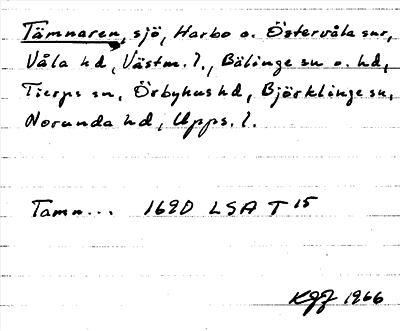 Tämnaren, sjö, Harbo o. Östervåla snr,
Våla hd, Västm. l., Bälinge sn o. hd,
Tierps sn, Örbyhus hd, Björklinge sn,
Norunda hd, Upps. l.
Tamn... 1690 LSA T 15
KGJ 1966